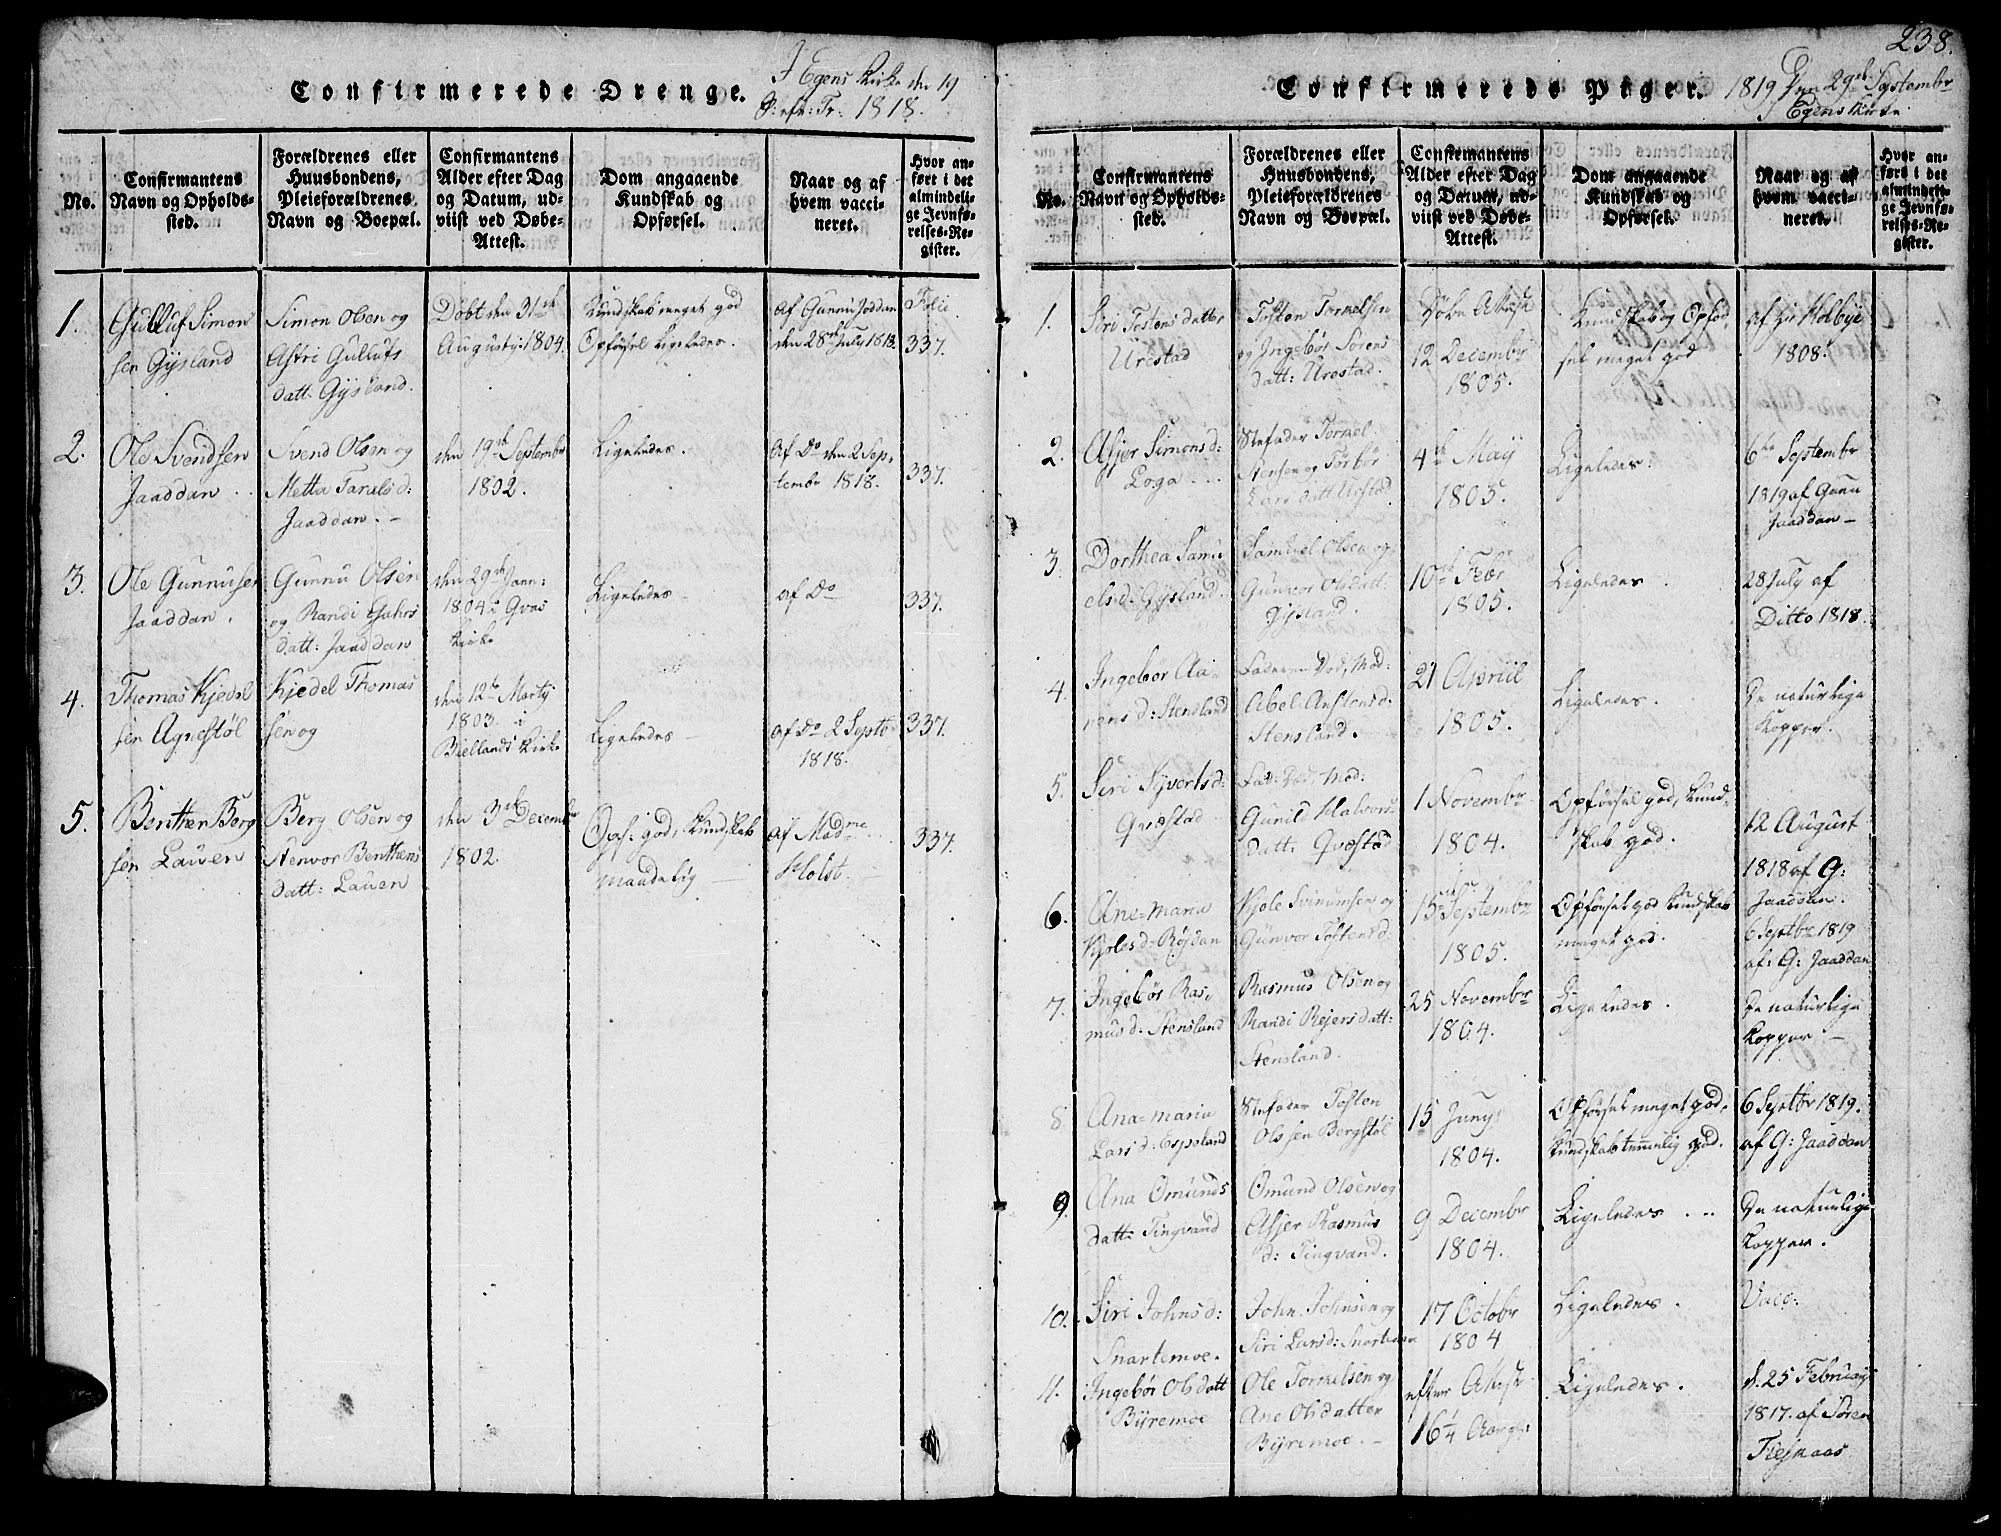 Confirmerede Drenge.
I Egens Kirke den 19
S: eft: Tr: 1818.
No.
Confirmantens
Navn og Opholds-
sted.
Forældrenes eller
Huusbondens,
Pleieforældrenes
Navn og Boepæl.
Confirmantens
Alder efter Dag
og Datum, ud-
viist ved Døbe-
Attest.
Dom angaaende
Kundskab og
Opførsel.
Naar og af
hvem vacci-
neret.
Hvor an-
ført i det
almindeli-
ge Jevnfø-
relses-Re-
gister.
1.
Gulluf Simon
sen Gysland
Simon Olsen og
Astri Gullufs
datt: Gysland.
Døbt den 31te
Augusty 1804.
Kundskab meget god
Opførsel Ligeledes.
af Gunnu Jaddan
den 28de July 1818.
Folio
337.
2.
Ole Svendsen
Jaaddan
Svend Olsen og
Metta Taralsd:
Jaaddan. –
den 19de September
1802.
Ligeledes.
af Do den 2 Sep-
tember 1818.
337.
3.
Ole Gunnusen
Jaaddan.
Gunnu Olsen
og Randi Gahrs
datt: Jaaddan
den 29de Jann:
1804 i Qvas
Kirke
Ligeledes
af Do
337.
4.
Thomas Kjedel
sen Agnestøl
Kjedel Thomas
sen og
den 12te Marty
1803. i
Biellands Kirke
Ligeledes –
af Do 2 Septb
1818.
337.
5.
Benthen Berg
sen Lauen
Berg Olsen og
Nenvor Benthens
datt: Lauen
den 3de December
1802.
Opf: god, Kundskab
maadelig –
af Madme
Holst –
337.
238.
Confirmerede Piger.
1819 den 29de September
I Egens Kirke
No.
Confirmantens
Navn og Opholds-
sted.
Forældrenes eller
Huusbondens,
Pleieforældrenes
Navn og Boepæl.
Confirmantens
Alder efter Dag
og Datum, ud-
viist ved Døbe-
Attest.
Dom angaaende
Kundskab og
Opførsel.
Naar og af
hvem vacci-
neret.
Hvor an-
ført i det
almindeli-
ge Jevnfø-
relses-Re-
gister.
1.
Siri Tostensdatter
Urestad
Tosten Tormelsen
og Ingebør Sørens
datt: Urestad.
Døbe Attest
12 December
1805.
Kundskab og Opfør
sel meget god
af Holbye
1808.
2.
Asjer Simonsd:
Loga
Stefader Tormel
Stensen og Torbør
Lars datt Urstad
4de May
1805.
Ligeledes.
6te September
1819 af Gunu
Jaaddan –
3.
Dorthea Samu
elsd: Gysland.
Samuel Olsen og
Gunvor Olsdatt:
Gysland.
10de Febr
1805.
Ligeledes.
28 July af
Ditto 1818.
4.
Ingebør Aa
nensd: Stensland
Faderen Død, Mod:
Abel Anstensd:
Stensland.
21 Apriil
1805.
Ligeledes.
De naturlige
Kopper.
5.
Siri Syvertsd:
Qvæstad
Fad: Død, Mod:
Gunild Halvors
datt: Qvæstad
1 November
1804.
Opførsel god, Kund-
skab god.
12 August
1818 af G:
Jaaddan.
6.
Ane=maria
Kjølesd: Røjdan
Kjøle Svinumsen og
Gunvor Tostensd:
15de September
1805.
Opførsel god Kundskab
meget god.
6 Septbr 1819
af: G: Jaaddan
7.
Ingebør Ras,
musd: Stensland
Rasmus Olsen og
Randi Rejersdatt:
Stensland.
25 November
1804.
Ligeledes.
De naturlige
Kopper –
8
Ana=maria
Larsd: Espeland
Stefader Tosten
Olssen Bergstøl
15 Juny
1804.
Opførsel meget god,
Kundskab temmelig god.
6 Septbr 1819.
af G: Jaaddan
9.
Ana Omunds
datt: Tingvand
Omund Olsen og
Asjer Rasmus
d: Tingvand.
9 December
1804.
Ligeledes
De naturlige
Kopper.
10.
Siri Johnsd:
Snartemoe.
John Johnsen og
Siri Larsd: Snartemoe
17 Octobr
1804
Ligeledes.
Vacc.
11.
Ingebør Olsdatt
Byremoe
Ole Tormelsen og
Ane Olsdatter
Byremoe. –
efter Attest
16 1/4 Aar
Ligeledes.
d. 25 February
1817. af Søren